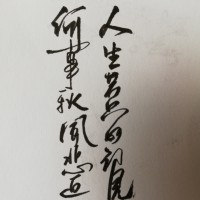 人生若只如初见
何事秋风悲画